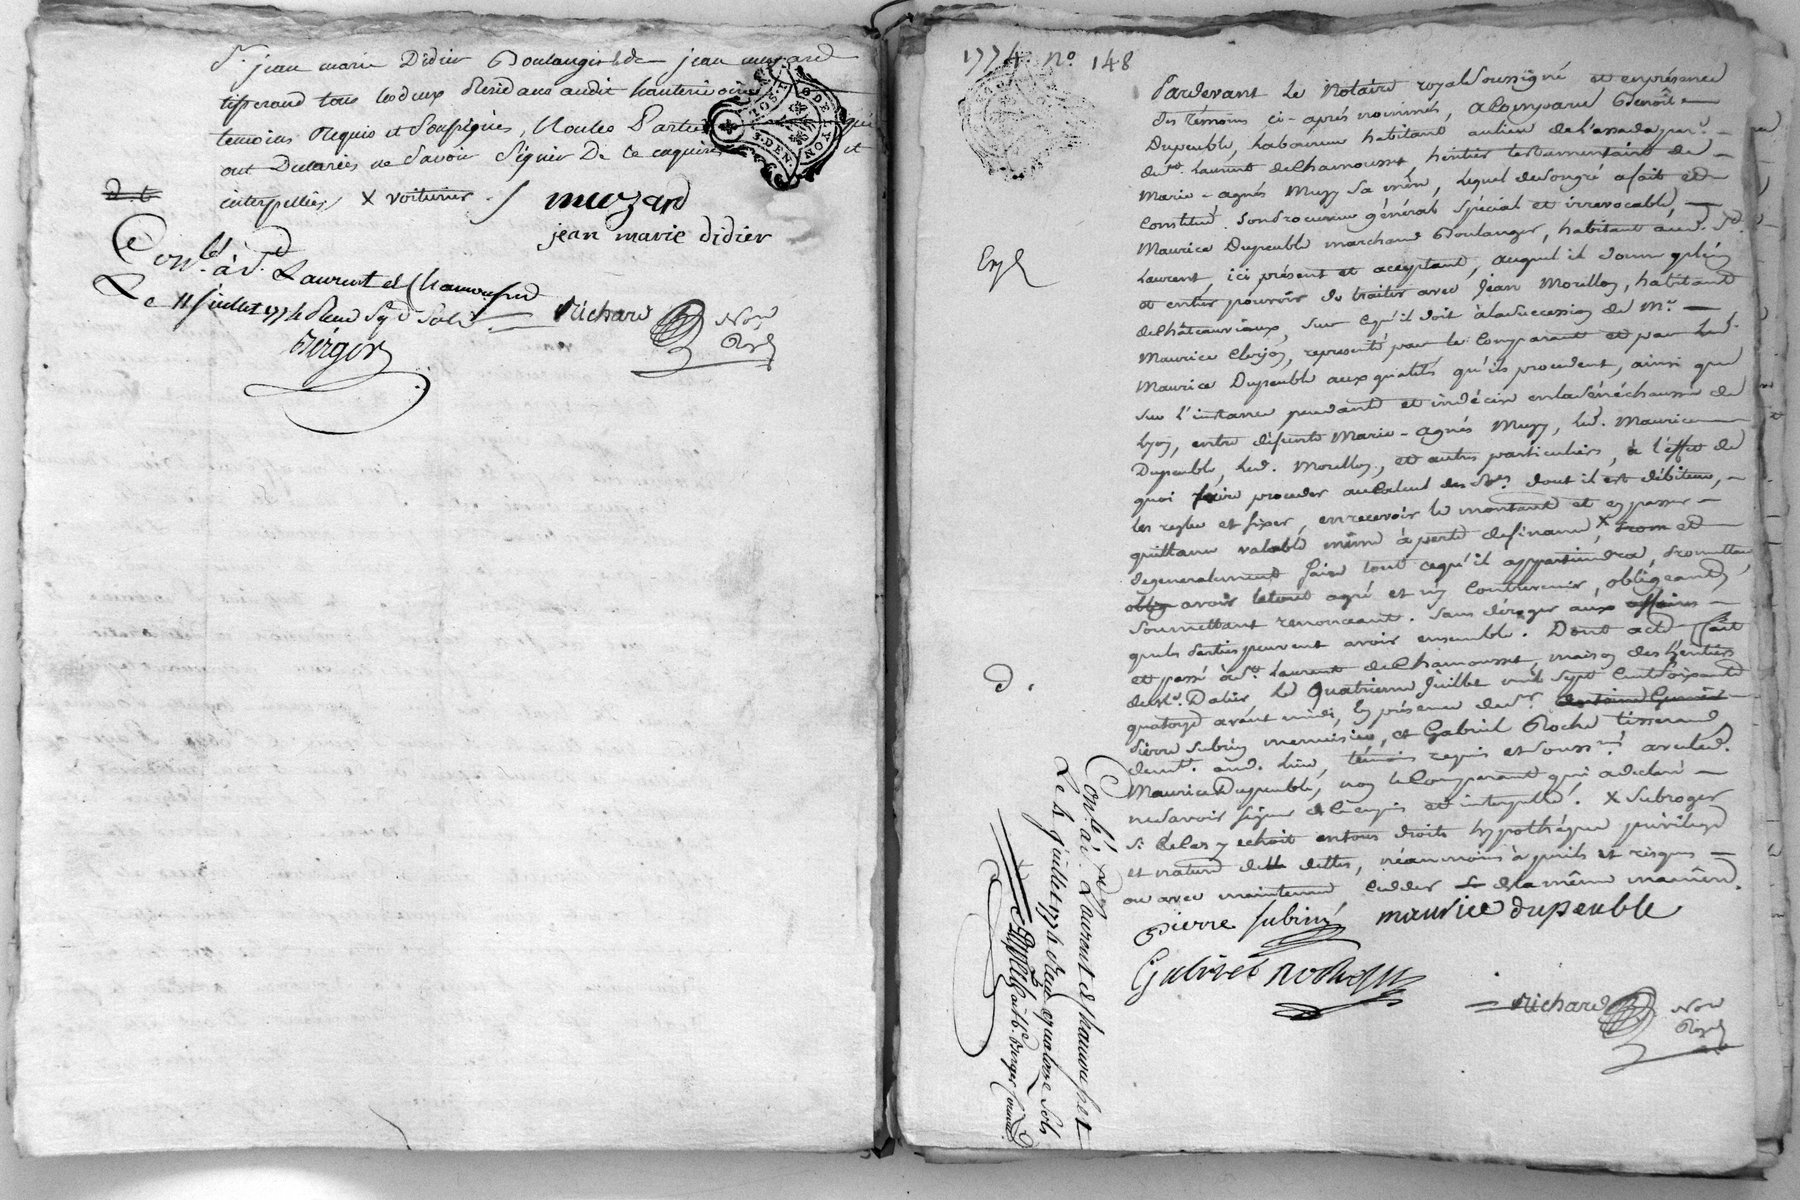 Sr. jean marie Didier Boulanger & de jean muzard
tisserand tous les deux Residans audit hauterivoire
temoins Requis et soussignés, Non les Parties qui
ont Declarées ne savoir signer De ce enquises et
interpellées X voiturier ./ muzard
jean marie didier
Conlé. à St. Laurent de Chamousset
Le 11 juillet 1774 Reçu sols
Berger
Richard Nore
Royal
1774 no 148
Pardevant Le Notaire royal soussigné et en présence
des témoins ci-après nommés, a comparu Benoît
Dupeuble, laboureur habitant au lieu de parse.
de St. Laurent de Chamousset héritier testamentaire de
Marie-agnés Muzy sa mère, lequel de son gré a fait et
constitué son Procureur général spécial et irrévocable,
Maurice Dupeuble marchand Boulanger, habitant aud. St.
Laurent, ici présent et acceptant, auquel il donne plein
et entier pouvoir de traiter avec Jean Morillon, habitant
de châteauvieux, sur ce qu'il doit à la succession de Mr.
Maurice Clerjon, représenté par le Comparant et par led.
Maurice Dupeuble aux qualités qu'ils procedent, ainsi que
sur l'instance pendante et indécise en la sénéchaussée de
Lyon, entre défunte Marie-agnés Muzy, led. Maurice
Dupeuble, led. Morillon, et autres particuliers, à l'effet de
quoi faire proceder au calcul des Ses. dont il est débiteur,
les regler et fixer, en recevoir le montant et en passer
quittance valable même à perte de finance, X prom et
generalement faire tout ce qu'il appartiendra, Promettant
oblig avoir le tout agré et n'y contrevenir, obligeant
soumettant renonceant. sans déroger aux affaires
que les Parties peuvent avoir ensemble. Dont acte fait
et passé à St. Laurent de Chamousset, maison des héritiers
de Sr. Dalier Le Quatrieme Juillet mil sept cent soixante
quatorze avant midi, En présence de Sr.
Pierre Subrin menuisier, et Gabriel Roche tisserand
demt. aud. lieu, témoins requis et soussnés avec led.
Maurice Dupeuble, non le Comparant qui a declaré
ne savoir signer de ce enquis et interpellé. X subroger
si le cas y echoit en tous droits hypothéque privilege
et nature de dettes, néanmoins à perils et risques
ou avec maintenue, ceder de la même maniere.
pierre subrin maurice dupeuble
Gabriel Roche
Richard Nore
Royal
Exp.
D.
Conlé. à St. Laurent de Chamousset
Le 4 juillet 1774 Reçu quatorze sols
Berger Comis